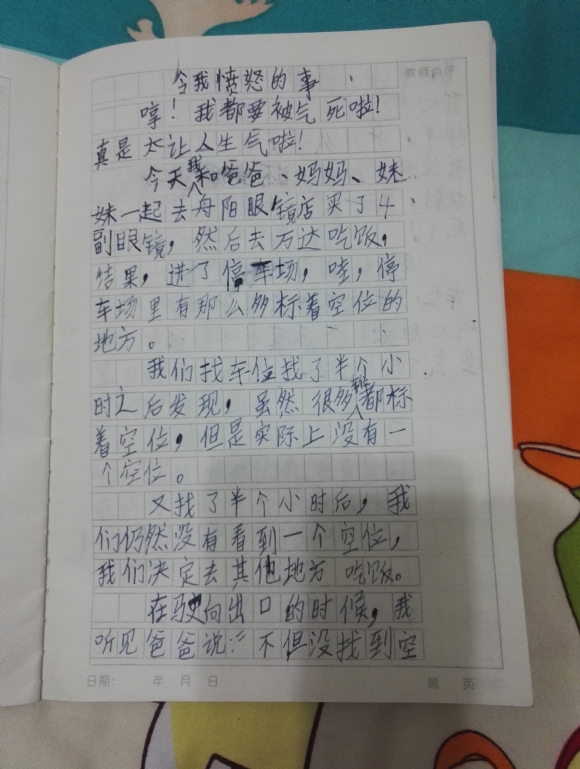 令我愤怒的事
哼！我都要被气死啦！
真是太让人生气啦！
今天我和爸爸、妈妈、妹
妹一起去丹阳眼镜店买了4
副眼镜，然后去万达吃饭，
结果，进了停车场，哇，停
车场里有那么多标着空位的
地方。
我们找车位找了半个小
时之后发现，虽然很多都标
着空位，但是实际上没有一
个空位。
又找了半个小时后，我
们仍然没有看到一个空位，
我们决定去其他地方吃饭。
在驶向出口的时候，我
听见爸爸说："不但没找到空
日期： 年 月 日 第 页